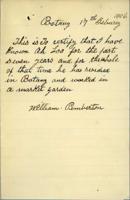 1902
Botany 17th February
This is to certify that I have
known Ah Loo for the past
seven years and for the whole
of that time he has reside
in Botany and worked in
a market garden
William Pemberton